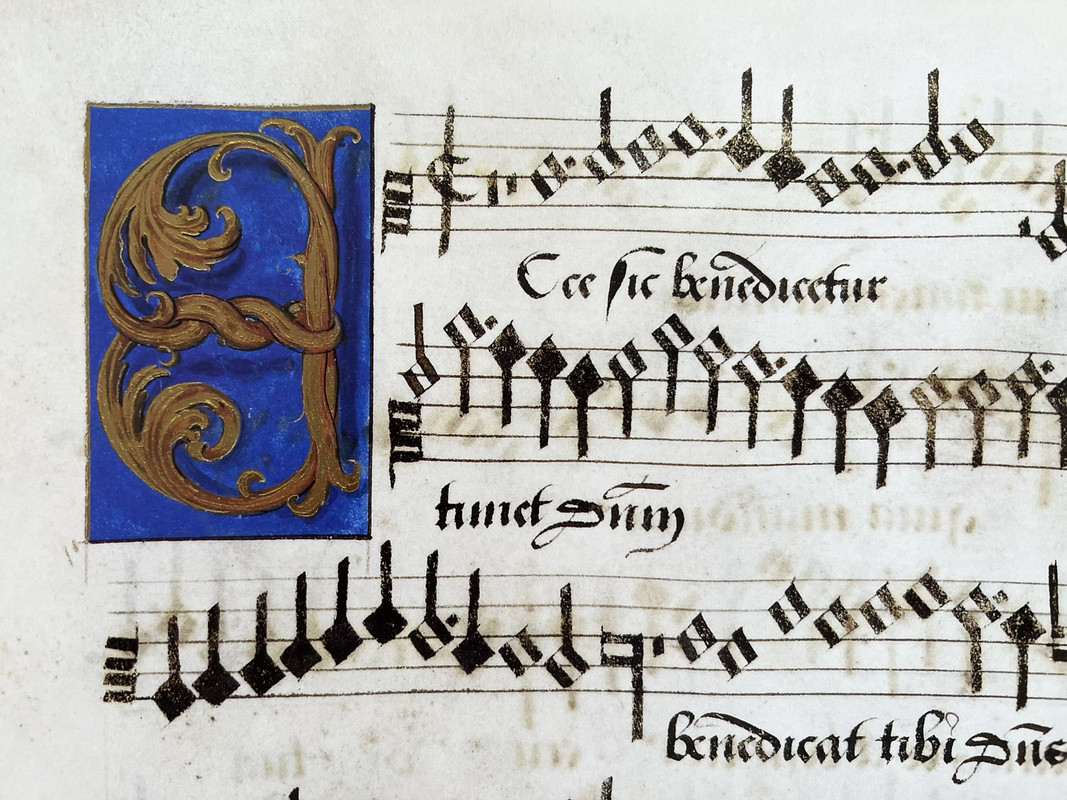 Ecce sic benedicetur
timet dnm
benedicat tibi dns